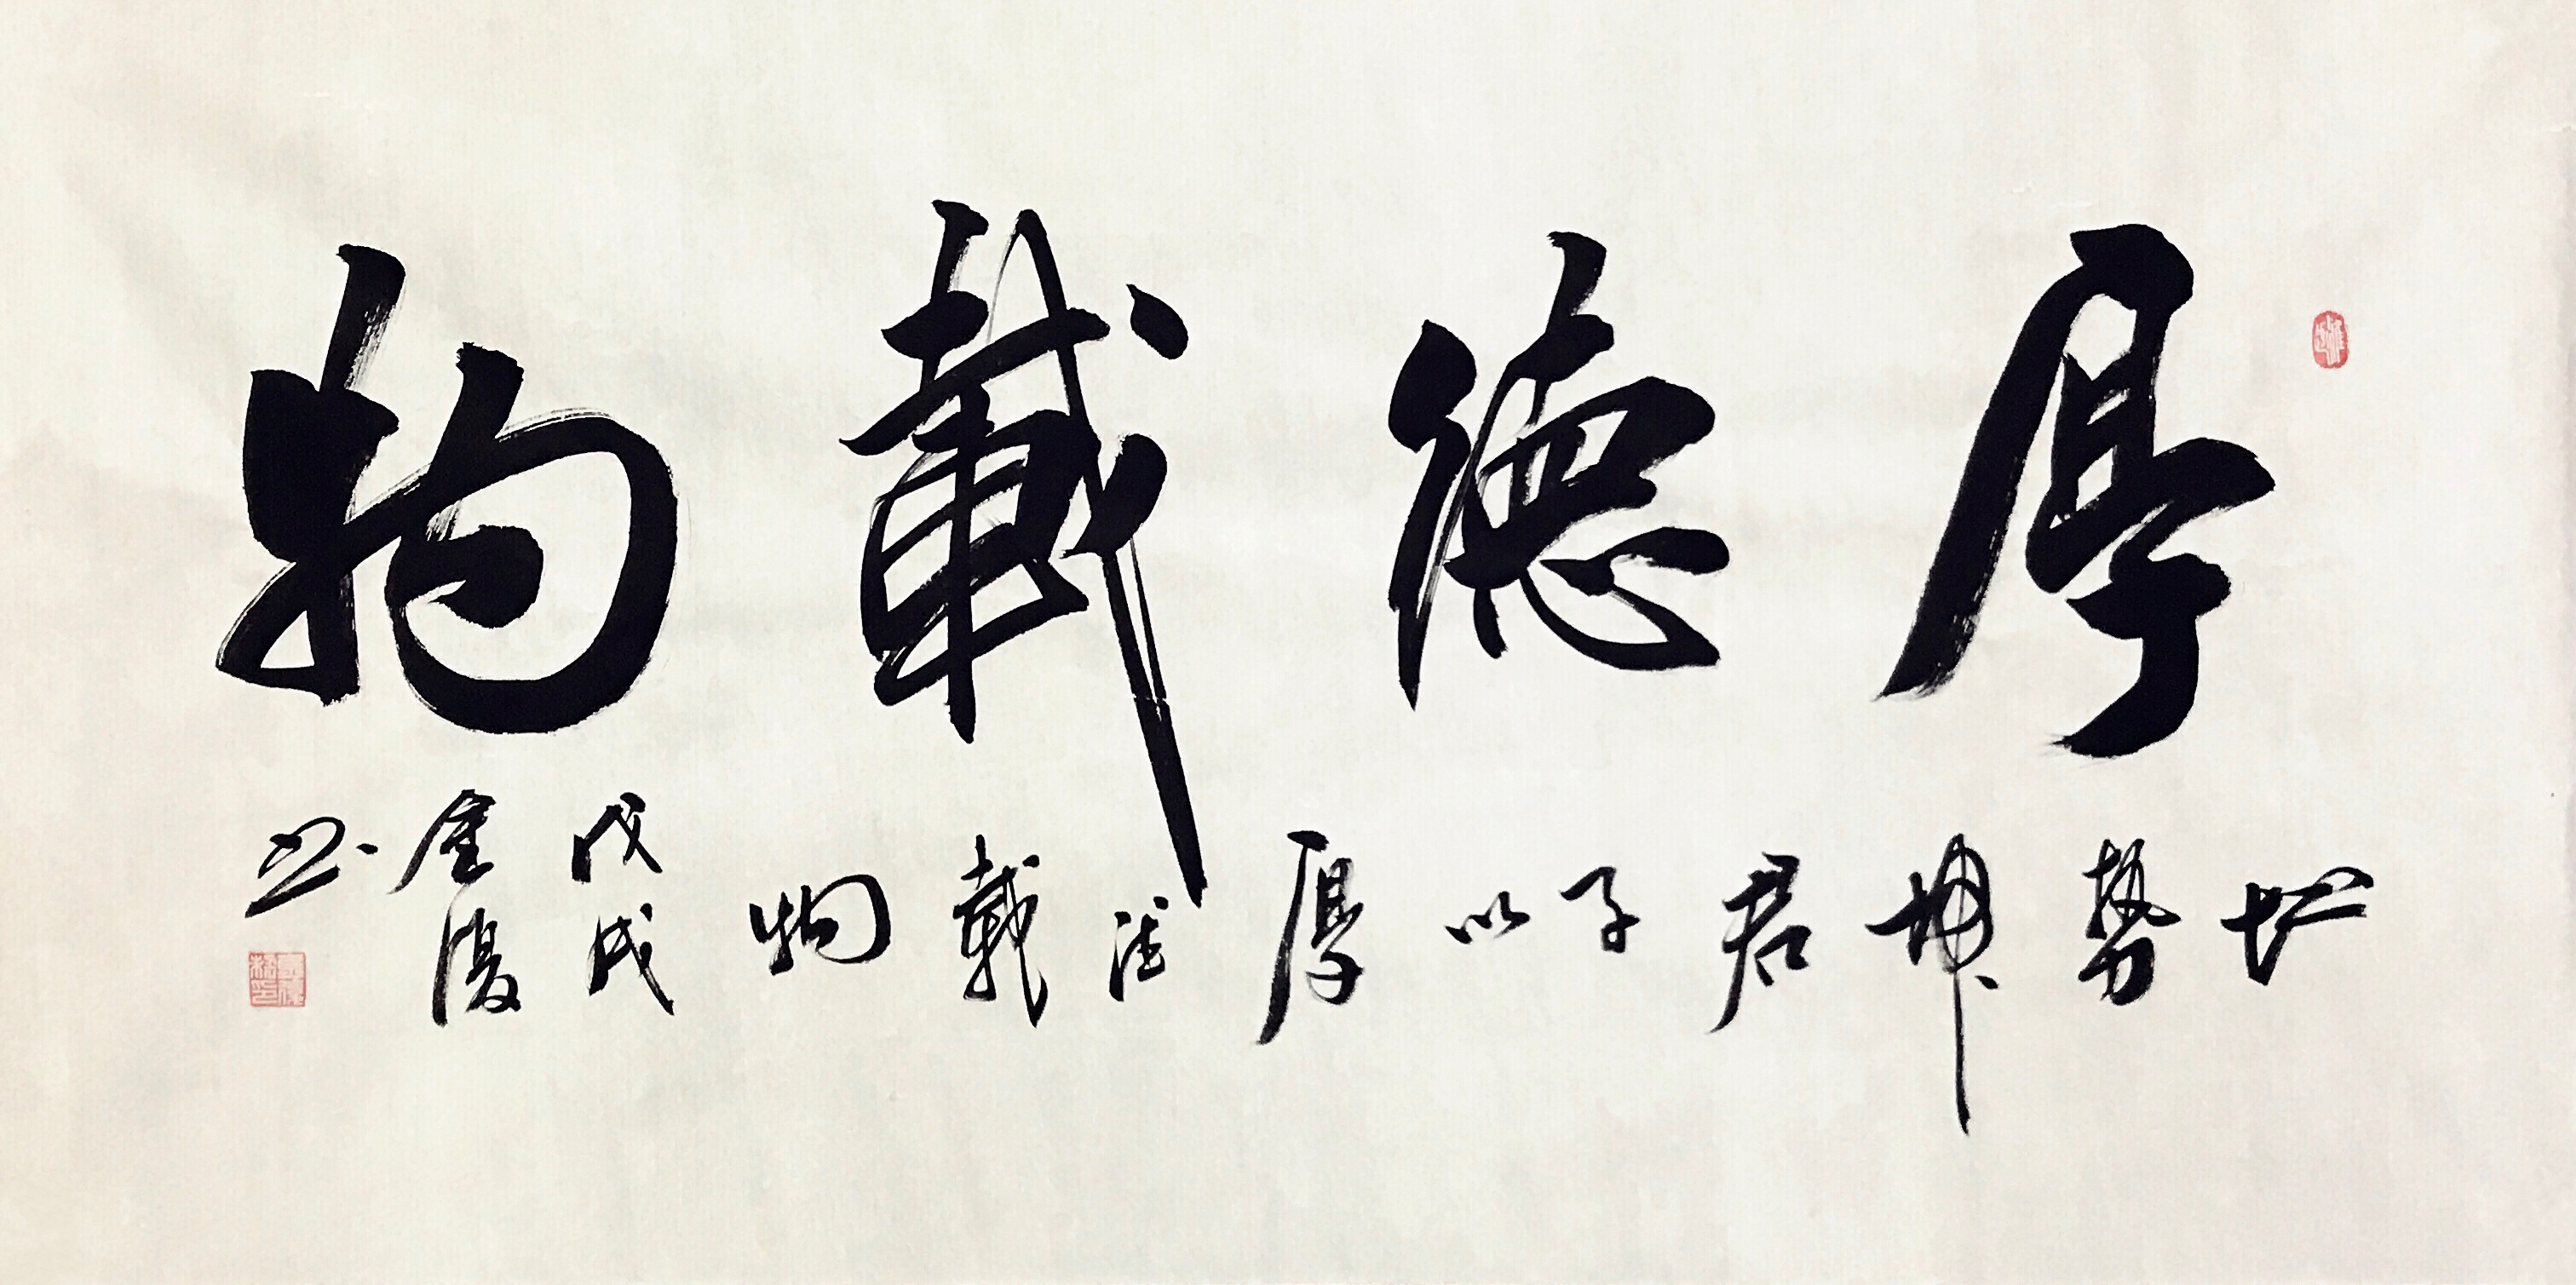 厚德載物
地勢坤君子以厚德載物
戊戌
书